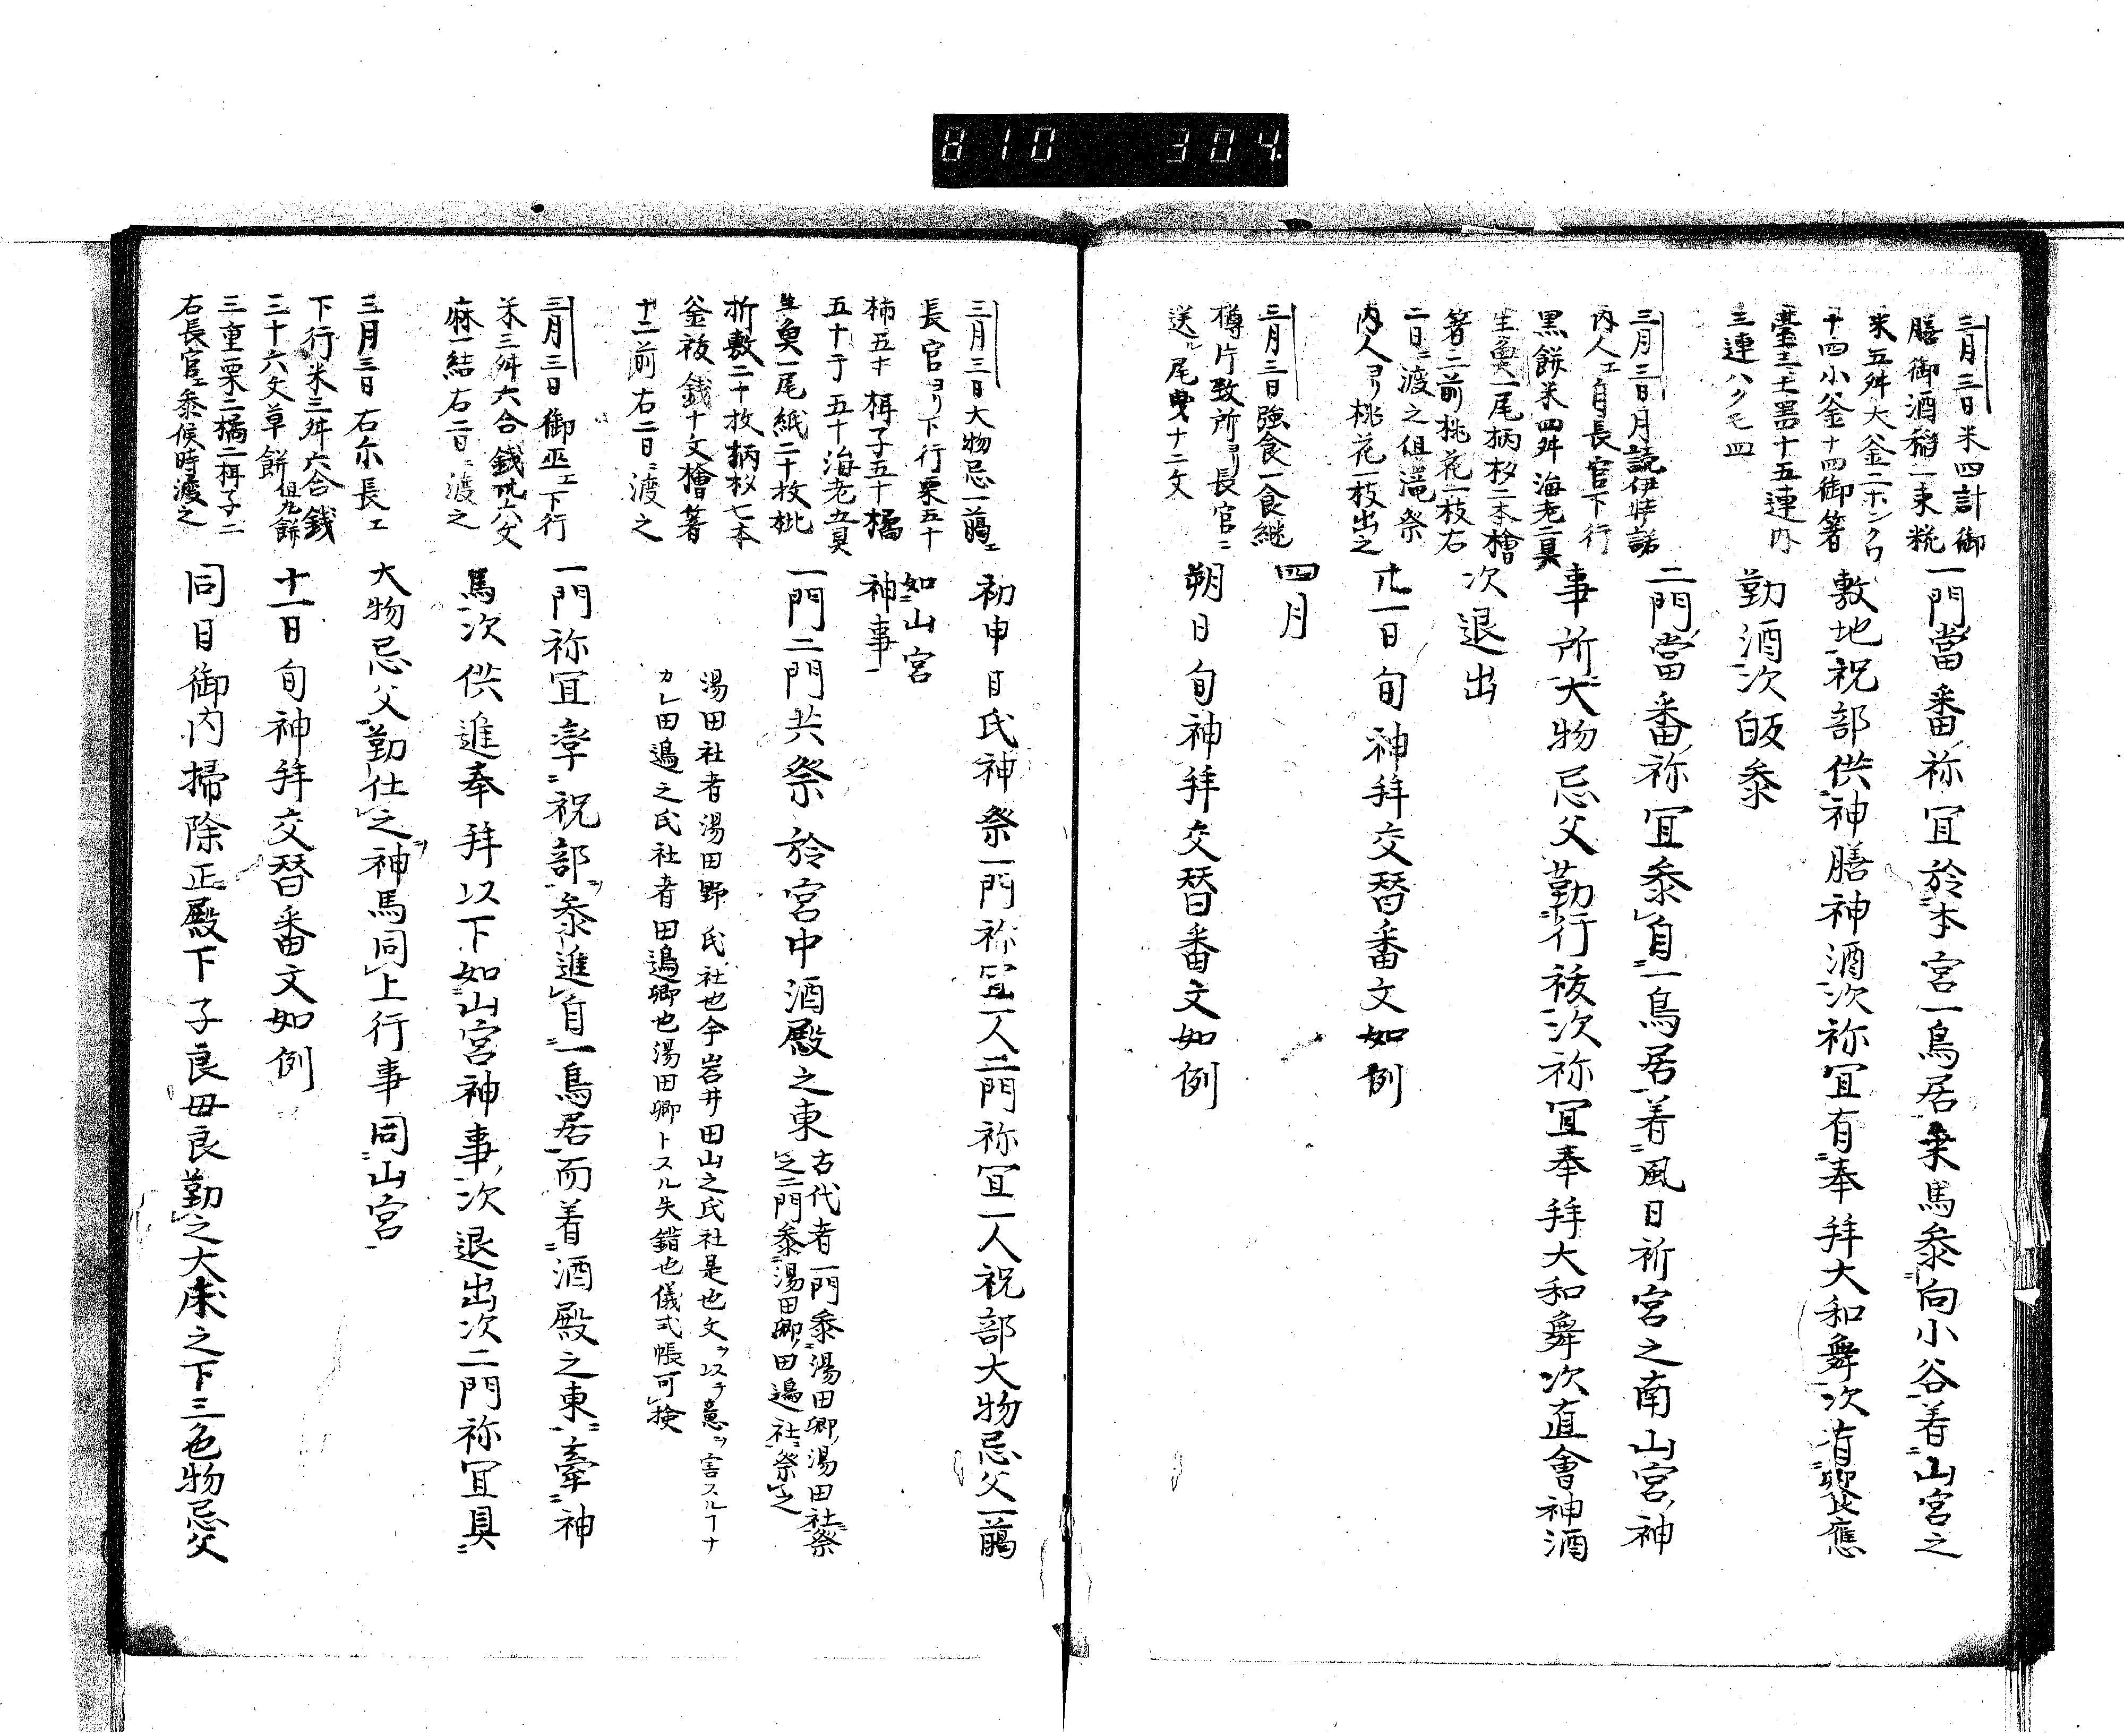 810 304.
三月三日米四計御
膳御酒稲一束糀
米五舛大釜二ホンクワ
十四小釜十四御箸
臺三土器十五連内
三連ハクモ四
三月三日月読伊弉諾
内人エ自長官下行
黒餅米四舛海老二具
生魚一尾柄杓二本檜
箸二前桃花一枝右
二日ニ渡之但滝祭
内人ヨリ桃花一枝出之
三月三日強食一食継
樽庁致所ヨリ長官ニ
送ル尾曳十二文
一門當番祢宜於本宮一鳥居乗馬参向小谷着山宮之
敷地祝部供神膳神酒次祢宜有奉拜大和舞次有饗應
勤酒次皈参
二門當番祢宜参自一鳥居着風日祈宮之南山宮神
事所大物忌父勤行祓次祢宜奉拜大和舞次直會神酒
次退出
廿一日旬神拜交替番文如例
四月
朔日旬神拜交替番文如例
三月三日大物忌一﨟エ
長官ヨリ下行栗五十
柿五十榧子五十橘
五十于五十海老五具
生魚一尾紙二十枚枇
折敷二十枚柄杓七本
釜祓銭十文檜箸
十二前右二日ニ渡之
三月三日御巫エ下行
米三舛六合銭卅六文
麻一結右二日ニ渡之
三月三日右尓長エ
下行米三舛六合銭
三十六文草餅但丸餅
三重栗二橘二榧子二
右長官エ参候時渡之
初申日氏神祭一門祢宜一人二門祢宜一人祝部大物忌父一﨟
如山宮
神事
一門二門共祭於宮中酒殿之東古代者一門参湯田郷湯田社祭
之二門参湯田郷田邊社祭之
湯田社者湯田野氏社也今岩井田山之氏社是也文ヲ以テ意ヲ害スルヿナ
カレ田邊之氏社者田邊郷也湯田郷トスル失錯也儀式帳可検
一門祢宜率祝部参進自一鳥居而着酒殿之東牽神
馬次供進奉拜以下如山宮神事次退出次二門祢宜具
大物忌父勤仕之神馬同上行事同山宮
十一日旬神拜交替番文如例
同日御内掃除正殿下子良母良勤之大床之下三色物忌父